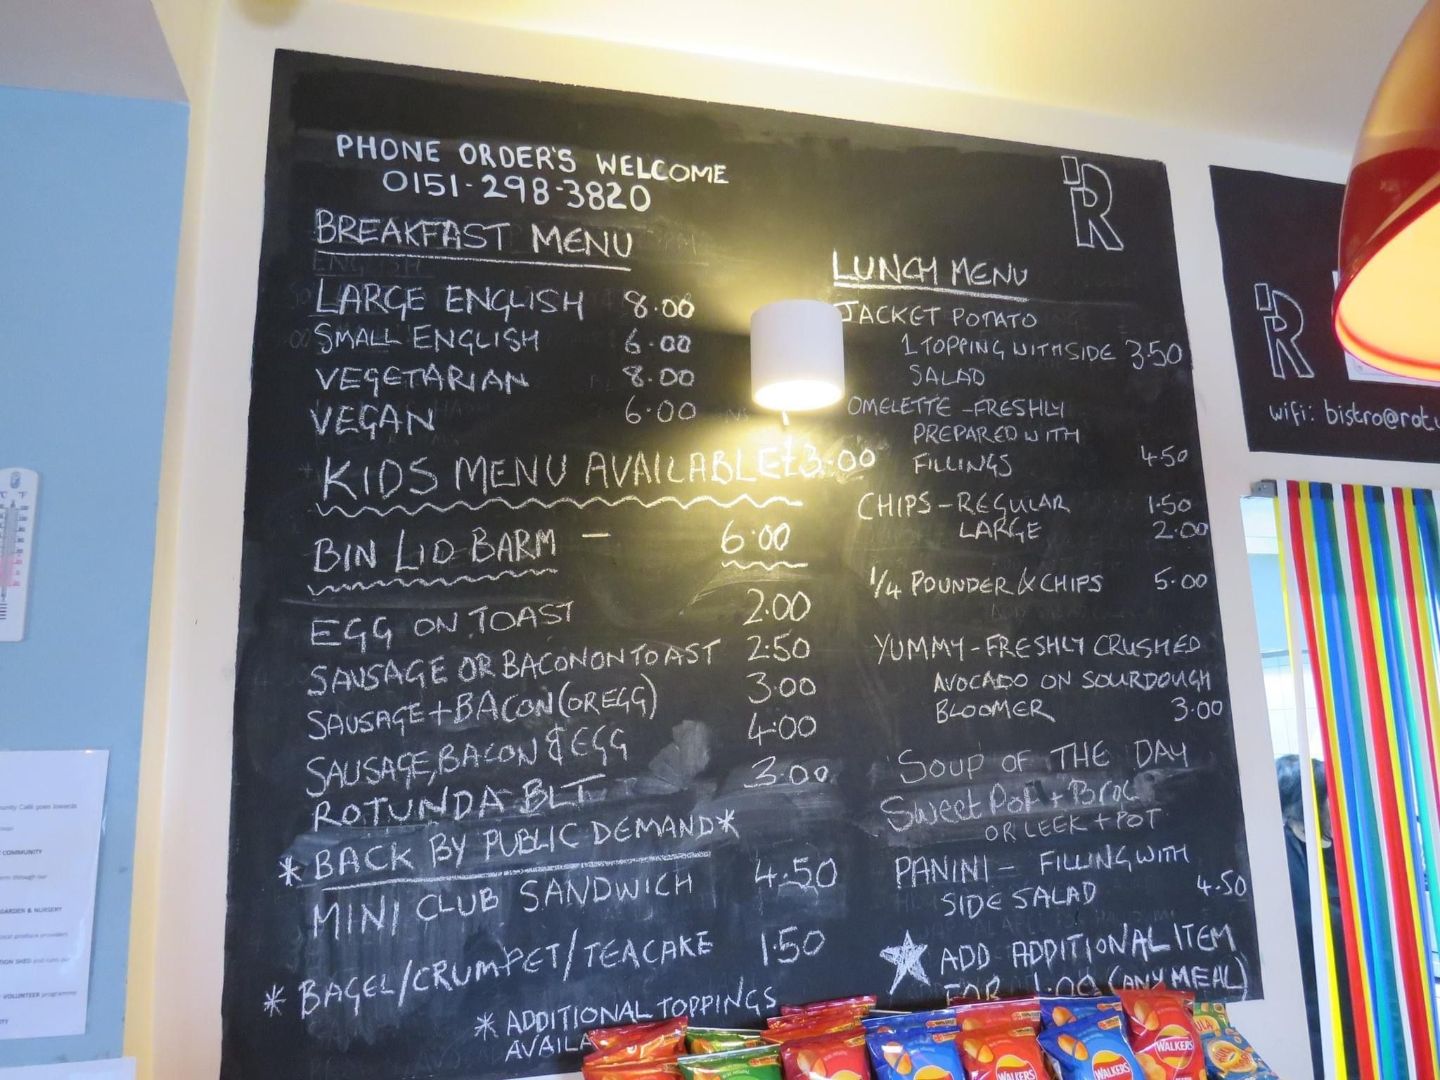 PHONE ORDER'S WELCOME
0151-298-3820
BREAKFAST MENU
LARGE ENGLISH 8.00
SMALL ENGLISH 6.00
VEGETARIAN 8.00
VEGAN 6.00
KIDS MENU AVAILABLE £3.00
BIN LID BARM - 6.00
EGG ON TOAST 2.00
SAUSAGE OR BACON ON TOAST 2.50
SAUSAGE + BACON (OR EGG) 3.00
SAUSAGE, BACON & EGG 4.00
ROTUNDA BLT 3.00
* BACK BY PUBLIC DEMAND *
MINI CLUB SANDWICH 4.50
* BAGEL/CRUMPET/TEACAKE 1.50
* ADDITIONAL TOPPINGS
R
LUNCH MENU
JACKET POTATO
1 TOPPING WITH SIDE 3.50
SALAD
OMELETTE - FRESHLY
PREPARED WITH
FILLINGS 4.50
CHIPS - REGULAR 1.50
LARGE 2.00
1/4 POUNDER & CHIPS 5.00
YUMMY - FRESHLY CRUSHED
AVOCADO ON SOURDOUGH
BLOOMER 3.00
SOUP OF THE DAY
SWEET POT + BROC
OR LEEK + POT
PANINI - FILLING WITH
SIDE SALAD 4.50
ADD ADDITIONAL ITEM
FOR 1.00 (ANY MEAL)
R
wifi:
WALKERS
WALKERS
WALKERS
COMMUNITY
GARDEN & NURSERY
VOLUNTEER programme